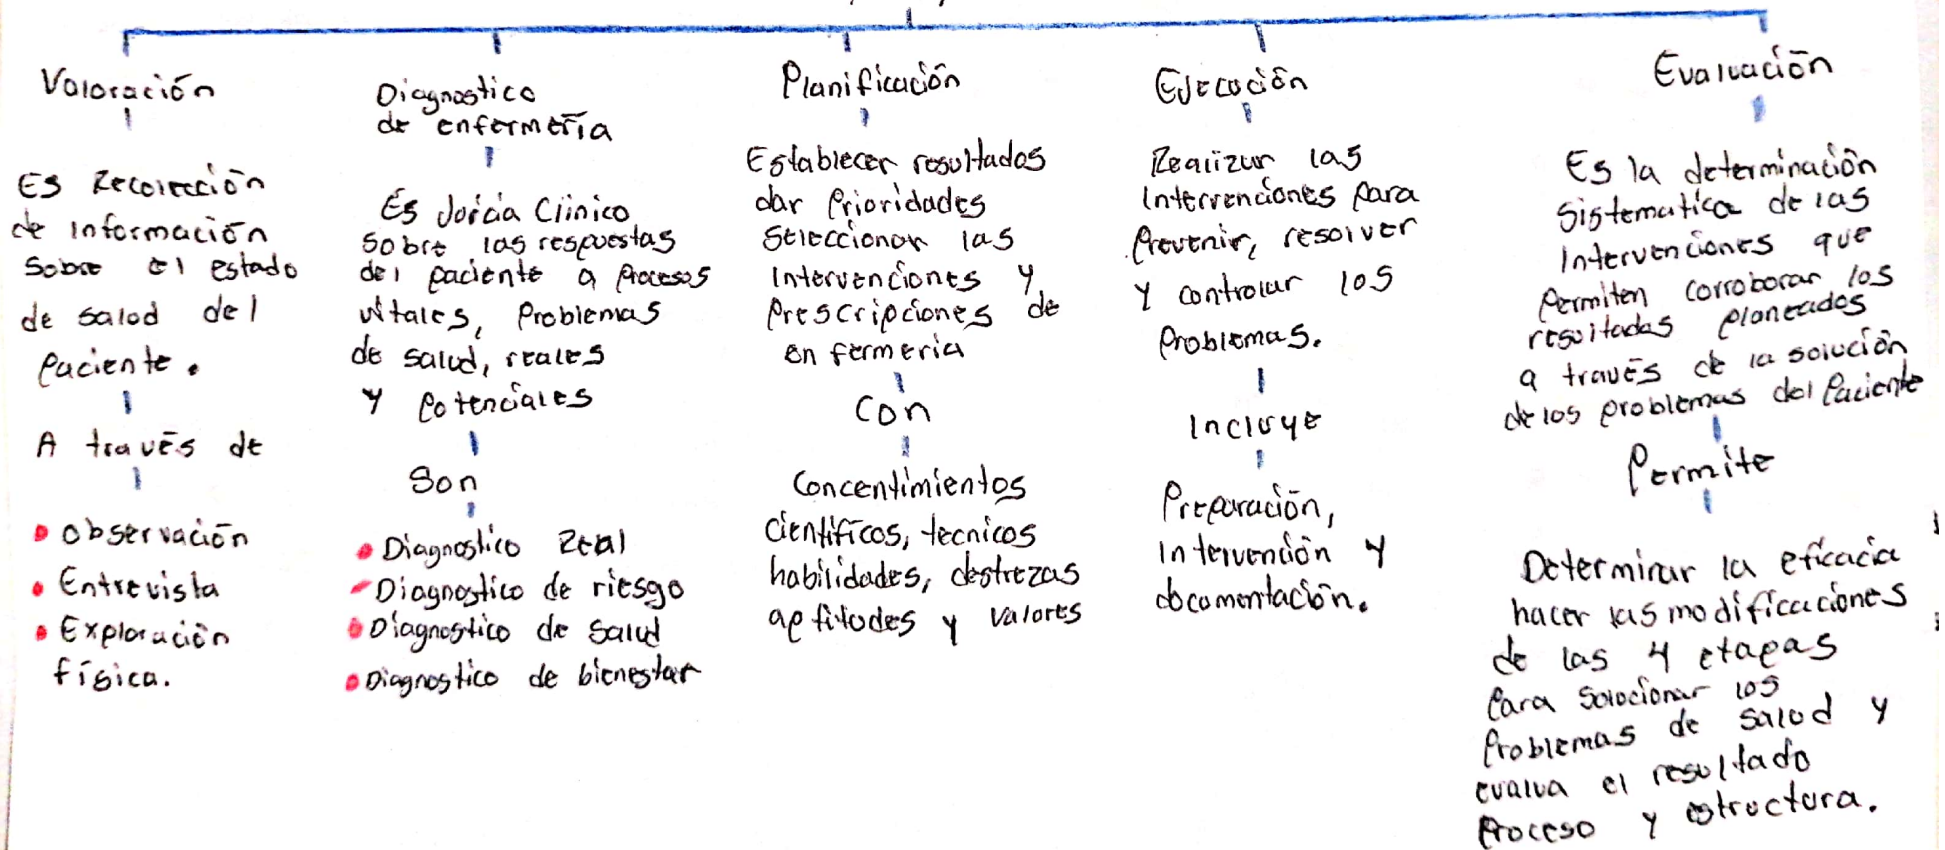 Valoración
Es Recolección
de información
Sobre el estado
de salud del
Paciente.
A través de
• observación
• Entrevista
• Exploración
física.
Diagnostico
de enfermería
Es Joicia Clinico
Sobre las respuestas
del paciente a Procesos
vitales, Problemas
de salud, reales
y Potenciales
Son
• Diagnostico Real
- Diagnostico de riesgo
• Diagnostico de Salud
• Diagnostico de bienestar
Planificación
Establecer resultados
dar Prioridades
Seleccionar las
Intervenciones y
Prescripciones de
enfermeria
Con
Concentimientos
Científicos, tecnicos
habilidades, destrezas
aptitudes y valores
Ejecución
Realizar las
Intervenciones Para
Prevenir, resolver
y controlar los
Problemas.
Incluye
Preparación,
Intervención y
documentación.
Evaluación
Es la determinación
Sistematica de las
Intervenciones que
Permiten corroborar los
resultados planeados
a través de la solución
de los problemas del Paciente
Permite
Determinar la eficacia
hacer las modificaciones
de las 4 etapas
Para Solocionar los
Problemas de Salud y
evalua el resultado
Proceso y estructura.